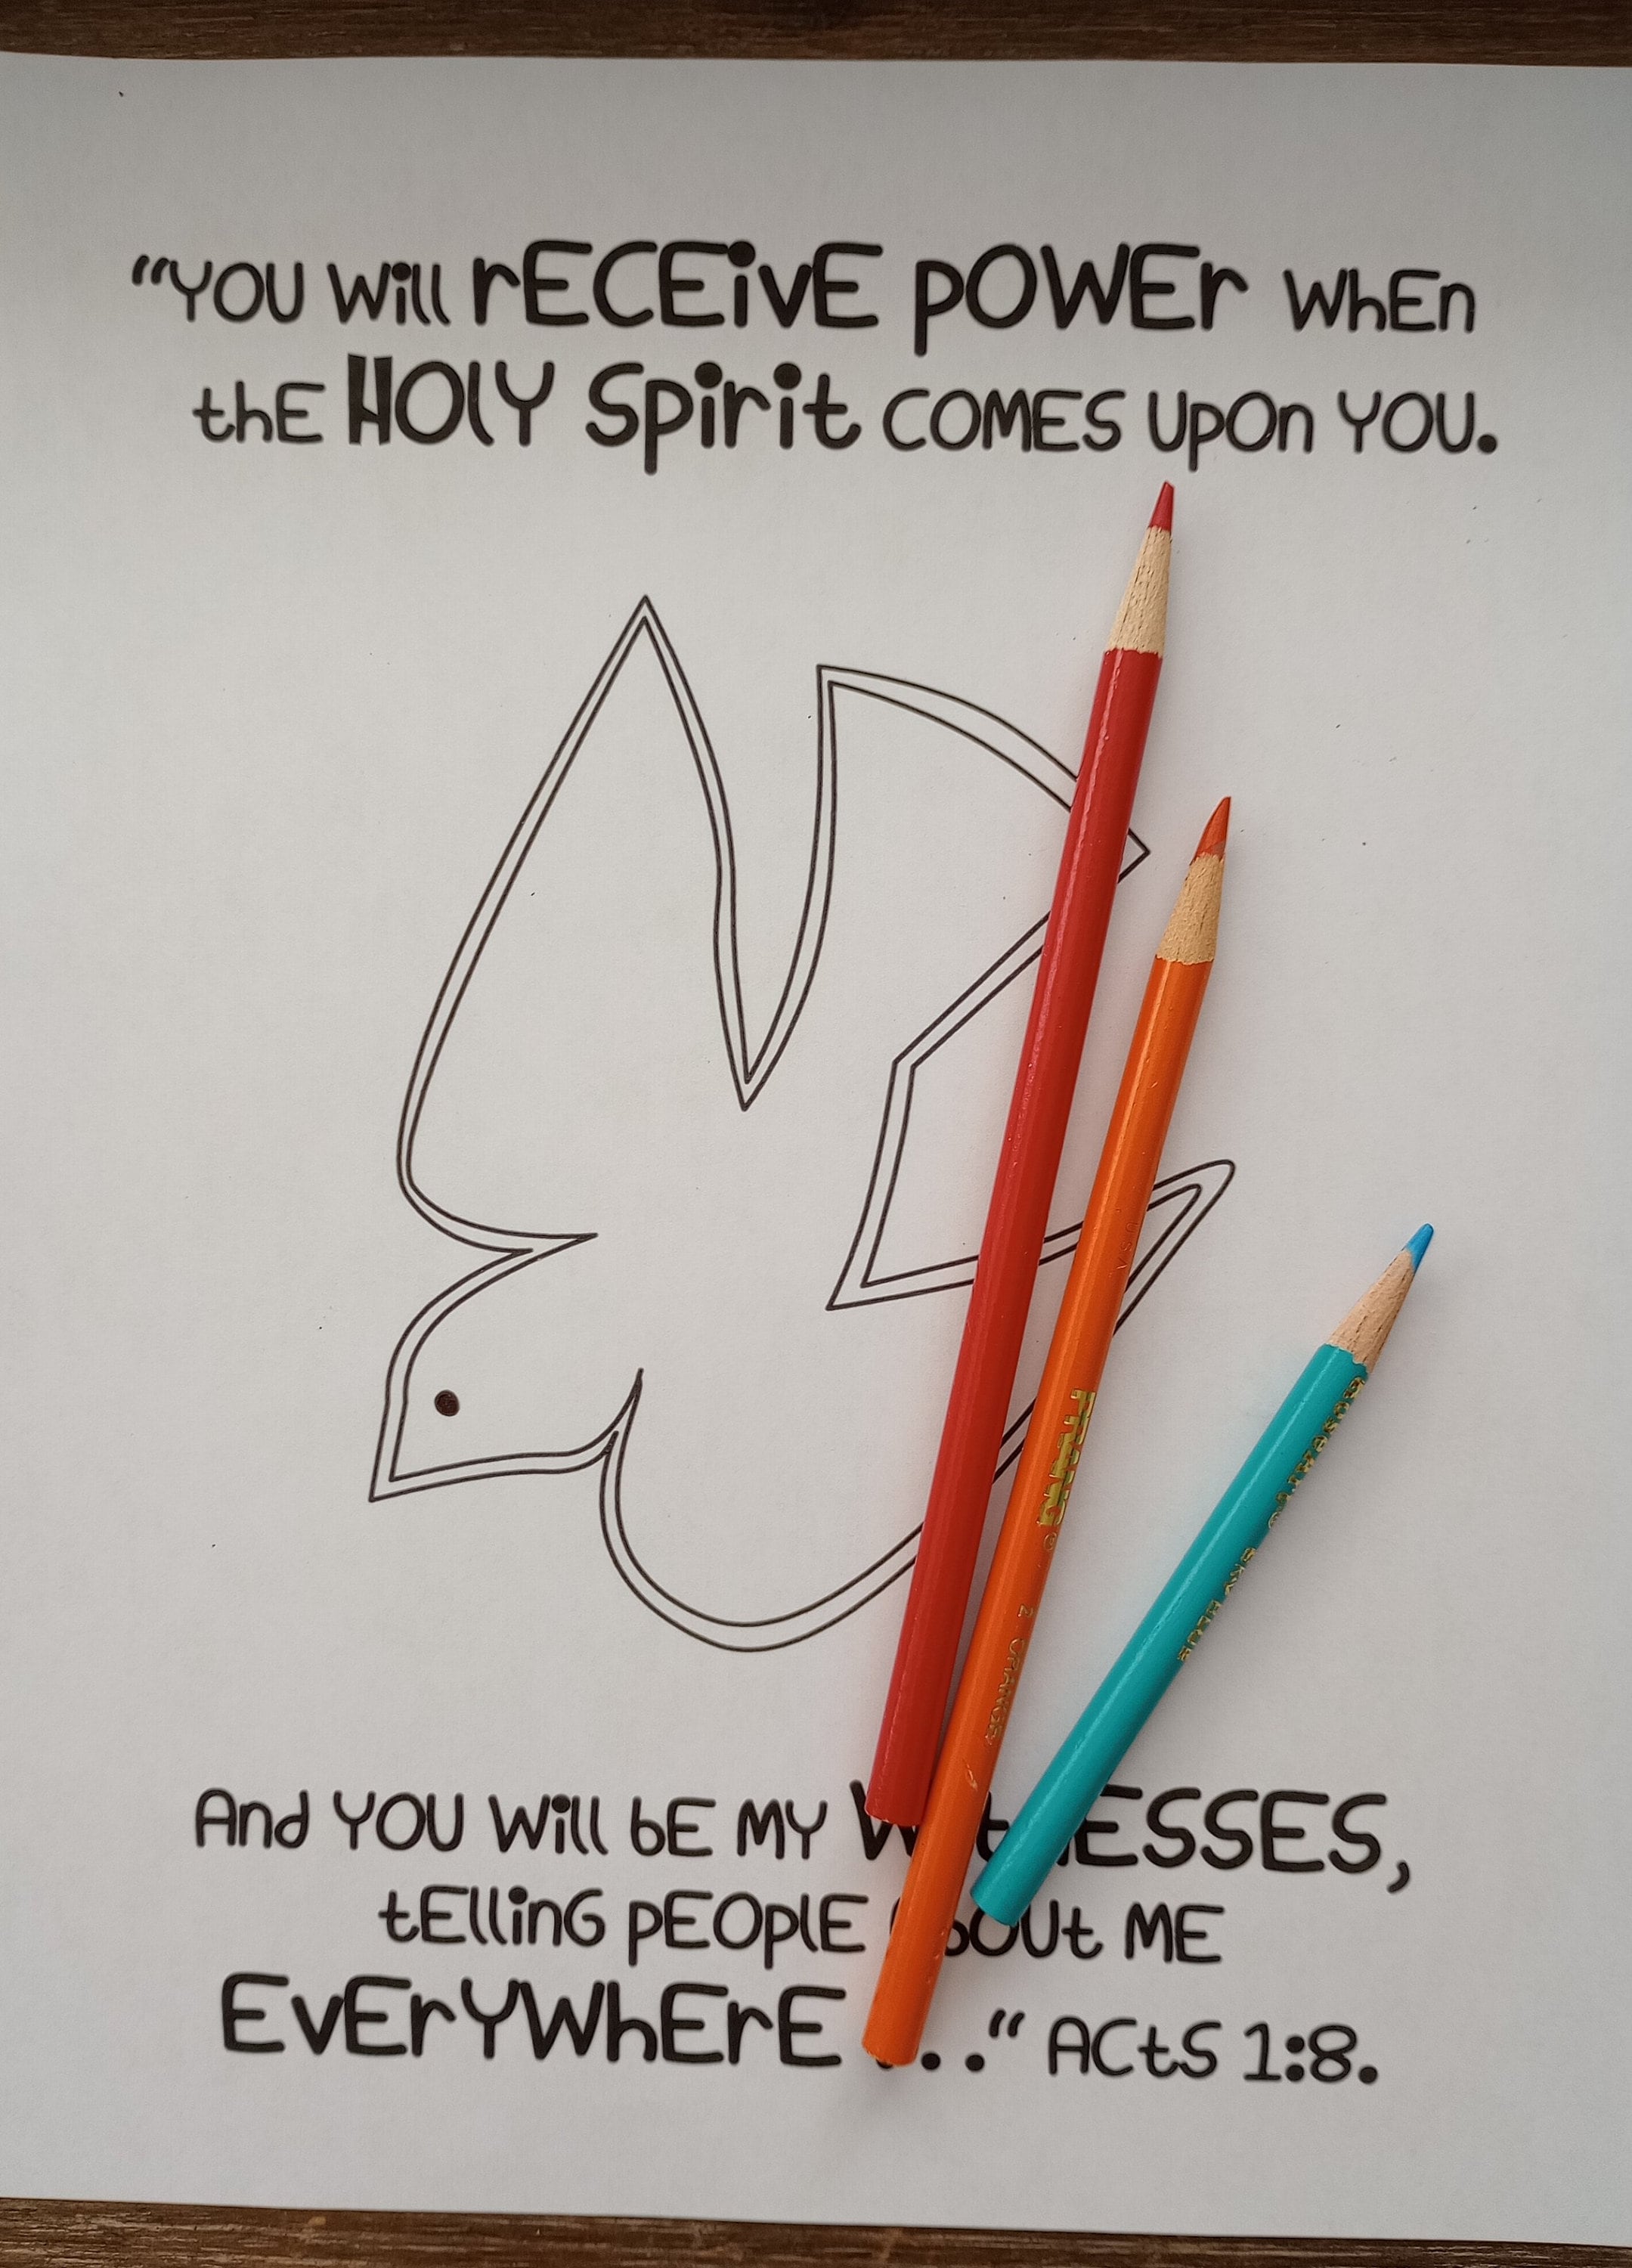 “YOU Will rECEivE pOWEr WhEn
thE HOlY Spirit COMES UpOn YOU.
And YOU Will bE MY WitnESSES,
tElling pEOplE AbOUt ME
EvErYWhErE . . .“ ACtS 1:8.
PRANG
ORANGE
Rose Art® SKY BLUE